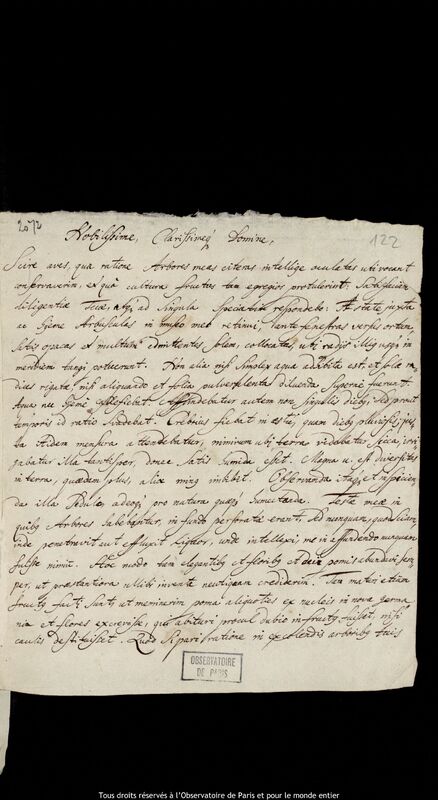 2073
122
Nobilissime, Clarissimeq Domine,
Scire aves, qua ratione Arbores meas citreas, intellige oculatas uti vocant
conservaverim, ex quo cultura fructus tam egregios protulerint; satisfaciam
diligentiæ Tuæ, atq ad singula specialim respondebo: Æstate juxta
ac hyeme Arbusculas in museo meo retinui, ante fenestras versus ortum,
satis opacas et multum admittentes solem, collocatas, uti radijs illius usq in
meridiem tangi potuerint. Non alia nisi simplex aqua adhibita est, et solæ ra-
dices rigatæ, nisi aliquando et folia pulverulenta diluenda superne fuerunt.
Aqua nec hyemi deficiebat. Affundebatur autem non singulis dieb, sed prout
temporis id ratio svadebat. Crebrius fiebat in æstu, quam dieb pluviosis;
itidem mensura attendebatur, nimirum ubi terra videbatur sicca, irri-
gabatur illa tantisper, donec satis humida esset. Magna n. est diversitas
in terra, quædam plus, alia minus imbibit. Observanda itaq et inspicien-
da illa sedule, adeoq pro natura humectanda. Testæ meæ in
quib Arbores habebantur, in fundo perforatæ erant, sed nunquam, quod sciam,
inde penetravit aut effluxit liquor, unde intellexi, me in affundendo nunquam
fuisse nimium. Hoc modo tam eleganter et florib et pomis abundavi sem-
per, ut præstantiora ullibi inveniri neutiquam crediderim. Tam maturi etiam
fructus facti sunt, ut meminerim poma aliquoties ex nucleis in nova germi-
nia et flores excrevisse, quæ abitura procul dubio in fructus fuissent, nisi
caulis destituisset. Quod si pari ratione in excolendis arborib tuis
OBSERVATOIRE
DE PARIS
Tous droits réservés à l'Observatoire de Paris et pour le monde entier